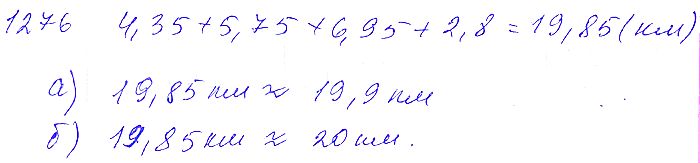 1276 4,35+5,75+6,95+2,8=19,85(км)
а) 19,85км ≈ 19,9км
б) 19,85км ≈ 20км.